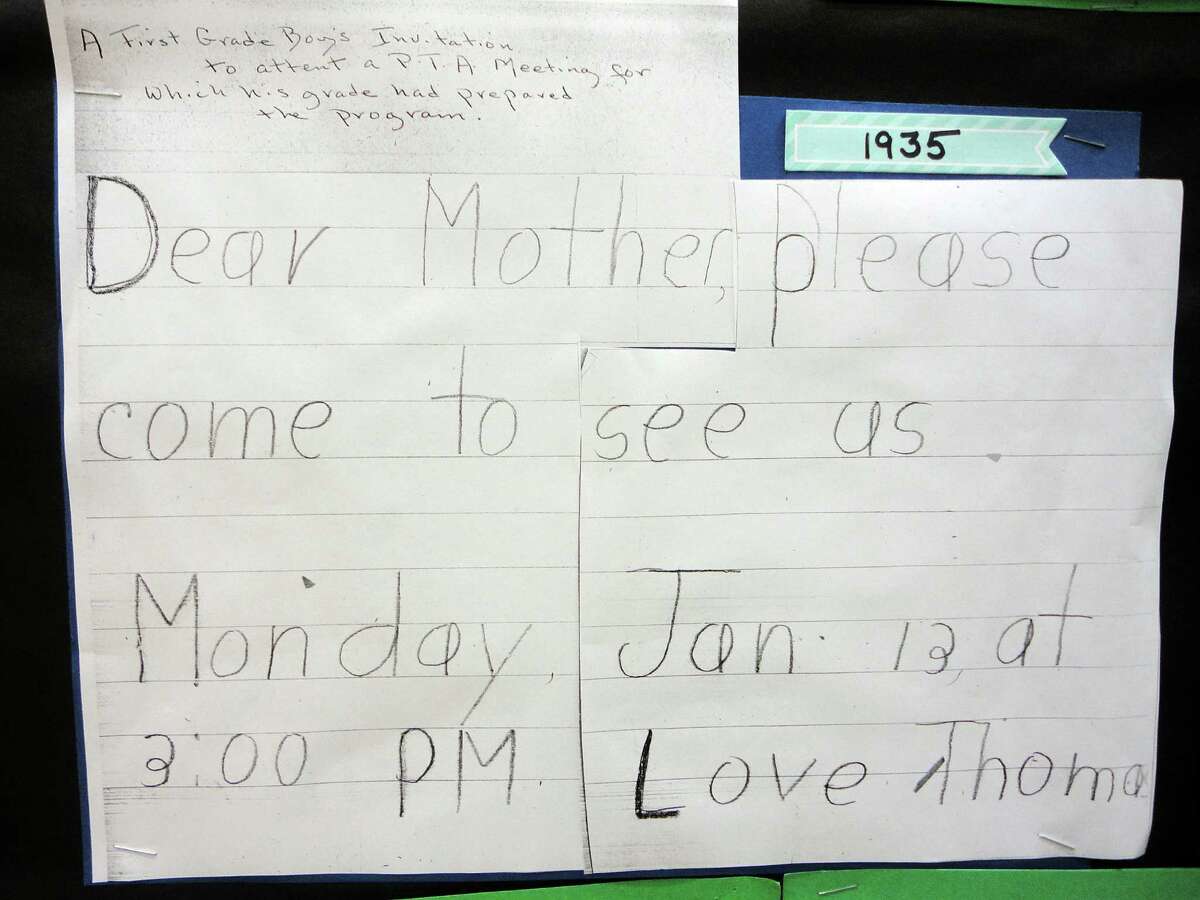 A First Grade Boy's Invitation
to attent a P.T.A. Meeting for
which his grade had prepared
the program.
1935
Dear Mother, please
come to see us.
Monday, Jan. 13, at
3:00 PM. Love Thoma